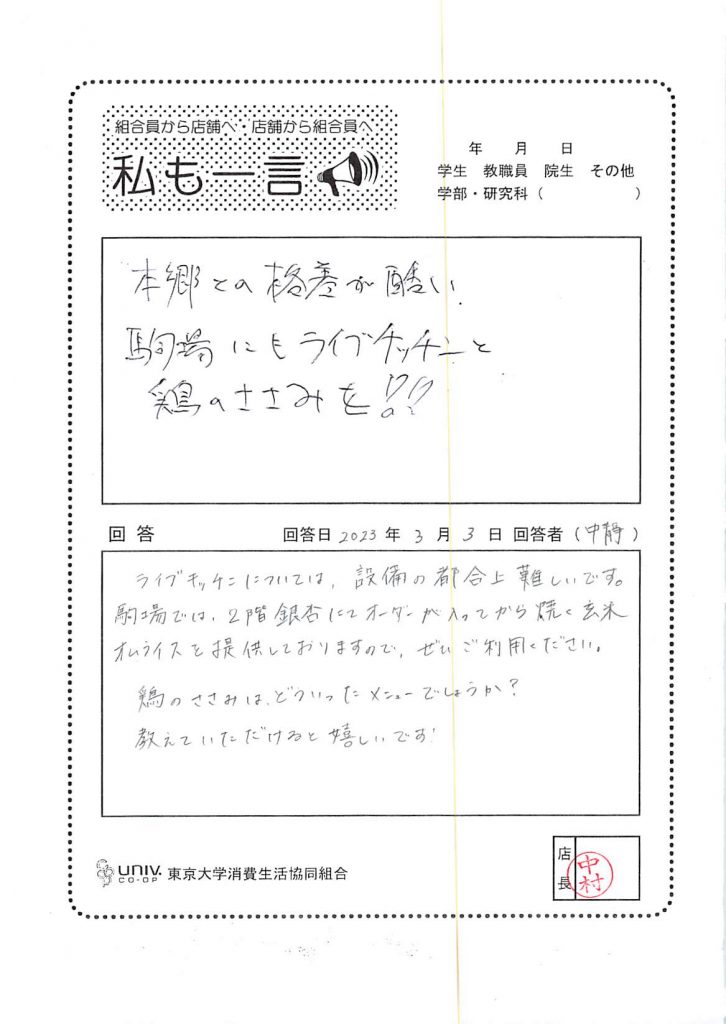 組合員から店舗へ・店舗から組合員へ
私も一言
年 月 日
学生 教職員 院生 その他
学部・研究科（ ）
本郷との格差が酷い
駒場にもライブキッチンと
鶏のささみを!?!?
回答 回答日 2023 年 3 月 3 日 回答者（中静）
ライブキッチンについては、設備の都合上難しいです。
駒場では、2階銀杏にてオーダーが入ってから焼く玄米
オムライスを提供しておりますので、ぜひご利用ください。
鶏のささみは、どういったメニューでしょうか？
教えていただけると嬉しいです!
UNIV. CO-OP 東京大学消費生活協同組合
店長 中村